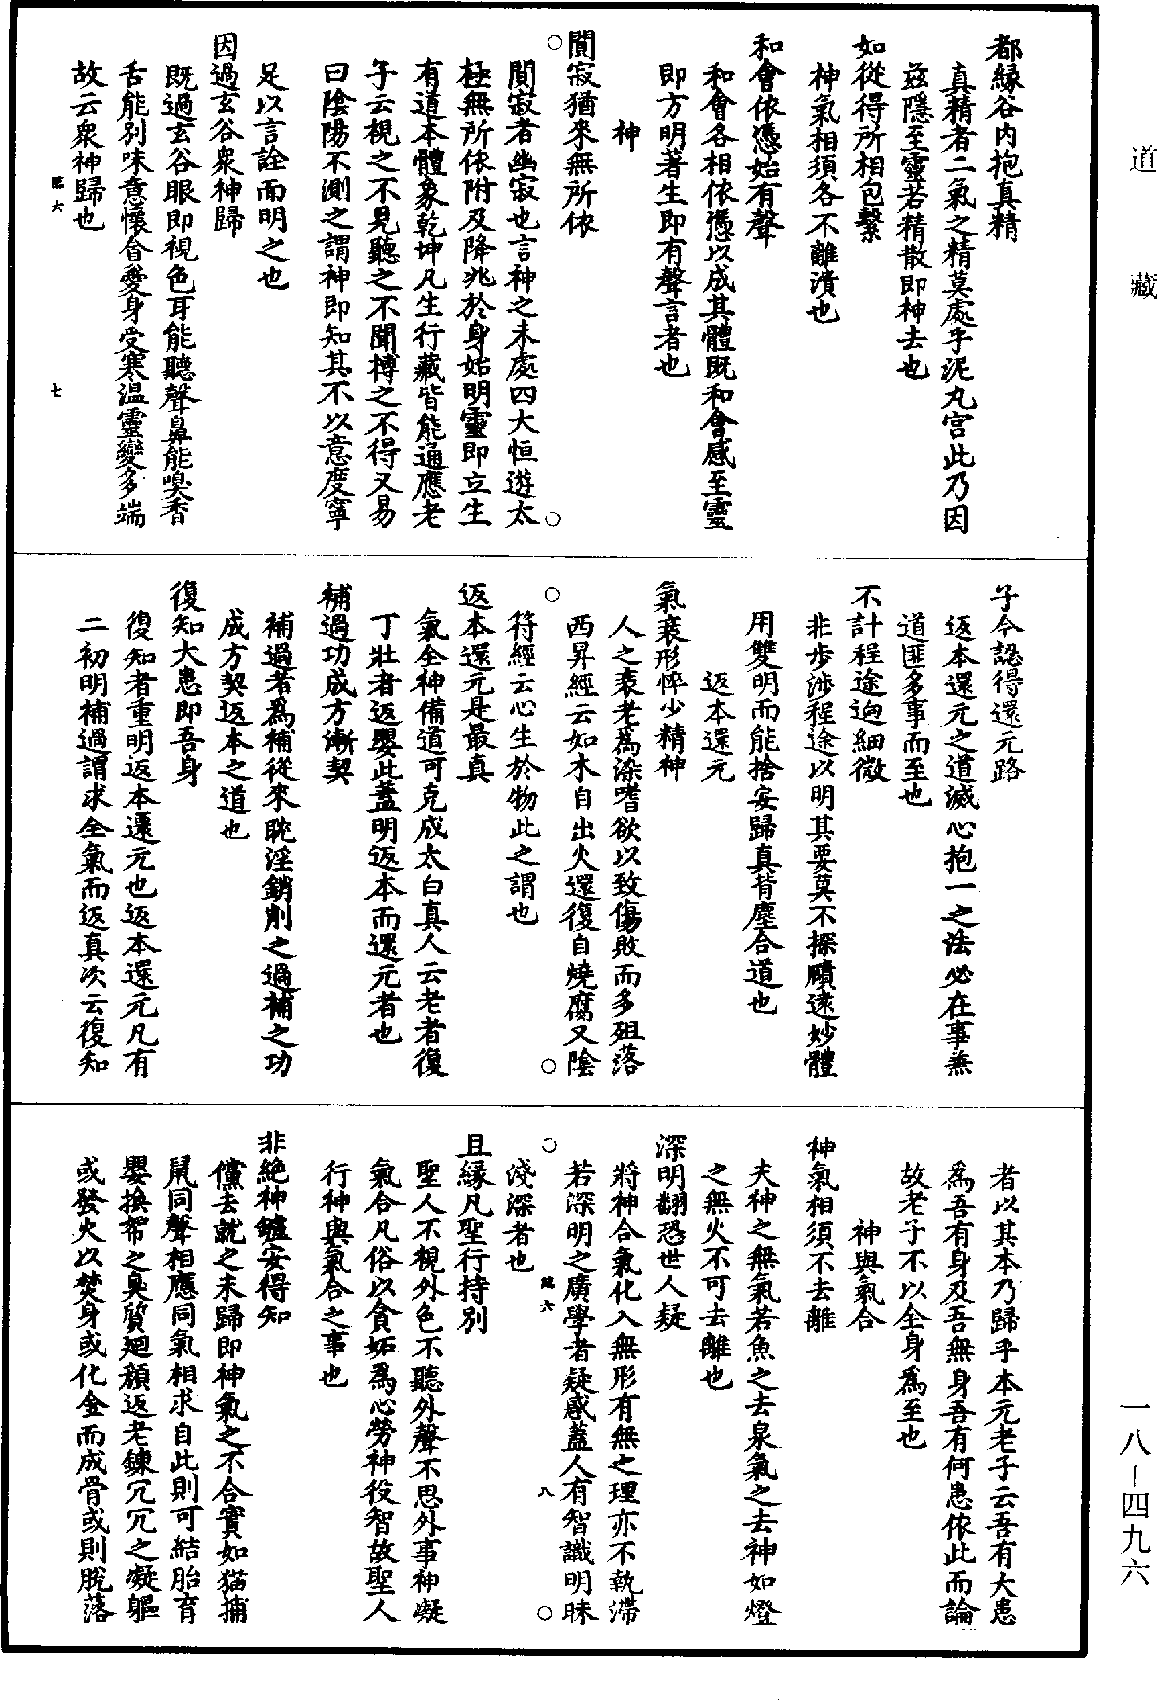 道藏
都緣谷內抱真精
真精者二氣之精莫處乎泥丸宮此乃因
茲隱至靈若精散即神去也
如從得所相包繫
神氣相須各不離漬也
和會依憑始有聲
和會各相依憑以成其體既和會感至靈
即方明著生即有聲言者也
神
閴寂猶來無所依
閴寂者幽寂也言神之未處四大恒遊太
極無所依附及降兆於身始明靈即立生
有道本體象乾坤凡生行藏皆能通應老
子云視之不見聽之不聞搏之不得又易
曰陰陽不測之謂神即知其不以意度寧
足以言詮而明之也
因過玄谷衆神歸
既過玄谷眼即視色耳能聽聲鼻能嗅香
舌能別味意懷會愛身受寒溫靈變多端
故云衆神歸也
子今認得還元路
返本還元之道滅心抱一之法必在事無
道匪多事而至也
不計程途逈細微
非步涉程途以明其要莫不探賾遠妙體
用雙明而能捨妄歸真背塵合道也
返本還元
氣衰形悴少精神
人之衰老爲染嗜欲以致傷敗而多殂落
西昇經云如木自出火還復自燒腐又陰
符經云心生於物此之謂也
返本還元是最真
氣全神備道可克成太白真人云老者復
丁壯者返嬰此蓋明返本而還元者也
補過功成方漸契
補過者爲補從來眈淫銷削之過補之功
成方契返本之道也
復知大患即吾身
復知者重明返本還元也返本還元凡有
二初明補過謂求全氣而返真次云復知
者以其本乃歸乎本元老子云吾有大患
爲吾有身及吾無身吾有何患依此而論
故老子不以全身爲至也
神與氣合
神氣相須不去離
夫神之無氣若魚之去泉氣之去神如燈
之無火不可去離也
深明翻恐世人疑
將神合氣化入無形有無之理亦不執滯
若深明之廣學者疑惑蓋人有智識明昧
淺深者也
且緣凡聖行持別
聖人不視外色不聽外聲不思外事神凝
氣合凡俗以貪妬爲心勞神役智故聖人
行神與氣合之事也
非絕神鑪安得知
儻去就之未歸即神氣之不合實如猫捕
鼠同聲相應同氣相求自此則可結胎育
嬰換帶之臭質廻顏返老鍊冗冗之凝軀
或發火以焚身或化金而成骨或則脫落
一八－四九六